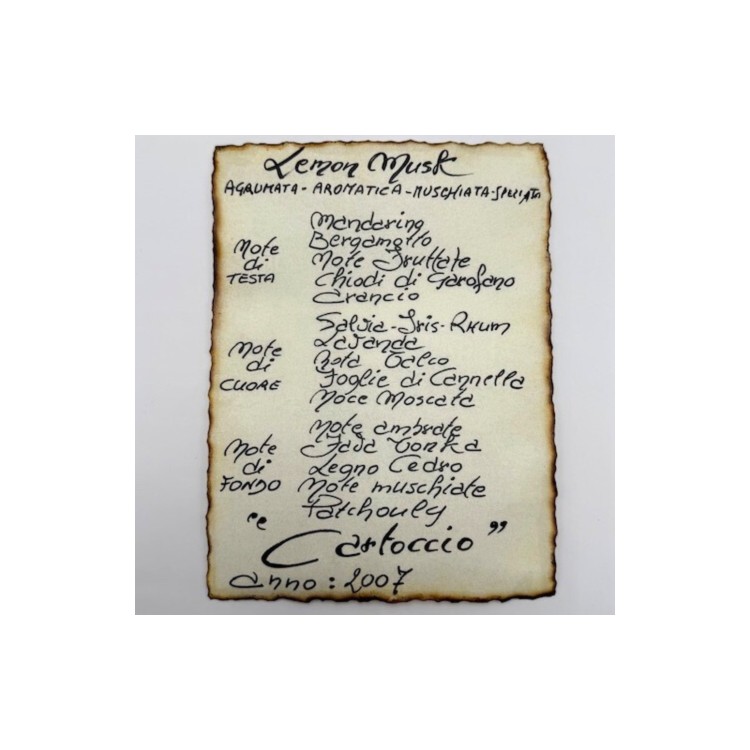 Lemon Musk
AGRUMATA - AROMATICA - MUSCHIATA - SPEZIATA
Note
di
TESTA
Mandarino
Bergamotto
Note Fruttate
Chiodi di Garofano
Arancio
Note
di
CUORE
Salvia - Iris - Rhum
Lavanda
Nota Talco
Foglie di Cannella
Noce Moscata
Note
di
FONDO
Note ambrate
Fava Tonka
Legno Cedro
Note muschiate
Patchouly
"Cartoccio"
anno: 2007